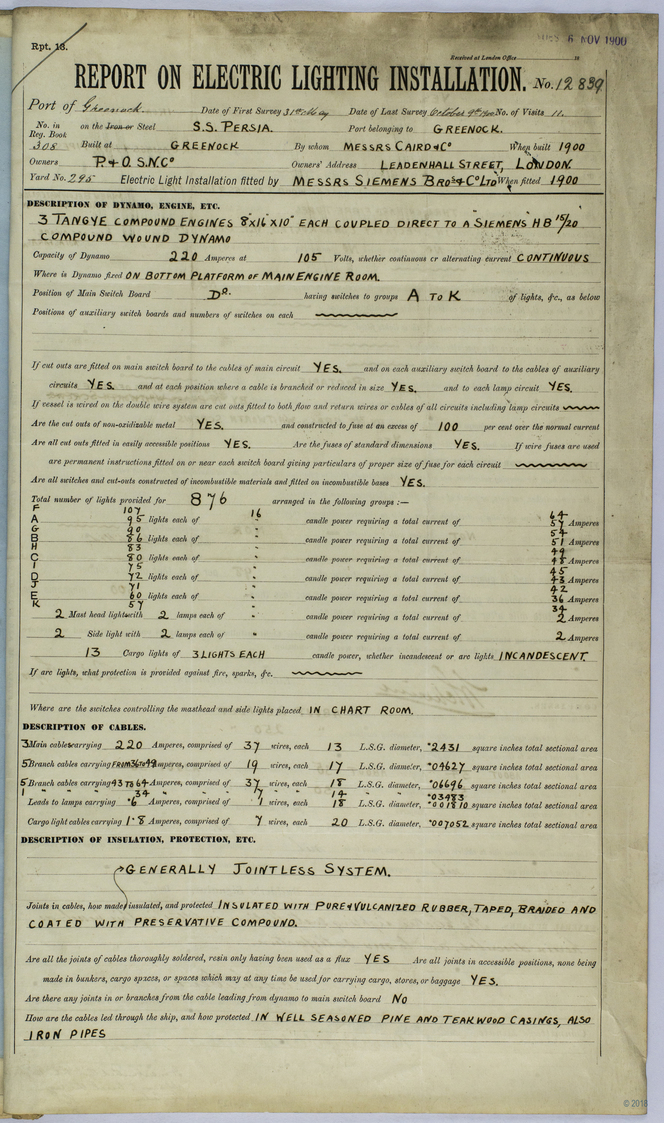 6 NOV 1900
Rpt. 13.
Received at London Office 19
REPORT ON ELECTRIC LIGHTING INSTALLATION. No. 12839
Port of Greenock. Date of First Survey 31st May Date of Last Survey October 9th 1900 No. of Visits 11.
No. in Reg. Book on the Iron or Steel S.S. PERSIA. Port belonging to GREENOCK.
308 Built at GREENOCK By whom MESSRS CAIRD & Co When built 1900
Owners P. & O. S.N.Co Owners' Address LEADENHALL STREET, LONDON
Yard No. 295 Electric Light Installation fitted by MESSRS SIEMENS BROS & Co LTD When fitted 1900
DESCRIPTION OF DYNAMO, ENGINE, ETC.
3 TANGYE COMPOUND ENGINES 8"X16"X10" EACH COUPLED DIRECT TO A SIEMENS HB 15/20
COMPOUND WOUND DYNAMO
Capacity of Dynamo 220 Amperes at 105 Volts, whether continuous or alternating current CONTINUOUS
Where is Dynamo fixed ON BOTTOM PLATFORM OF MAIN ENGINE ROOM.
Position of Main Switch Board Do. having switches to groups A TO K of lights, &c., as below
Positions of auxiliary switch boards and numbers of switches on each
If cut outs are fitted on main switch board to the cables of main circuit YES. and on each auxiliary switch board to the cables of auxiliary
circuits YES. and at each position where a cable is branched or reduced in size YES. and to each lamp circuit YES.
If vessel is wired on the double wire system are cut outs fitted to both flow and return wires or cables of all circuits including lamp circuits
Are the cut outs of non-oxidizable metal YES. and constructed to fuse at an excess of 100 per cent over the normal current
Are all cut outs fitted in easily accessible positions YES. Are the fuses of standard dimensions YES. If wire fuses are used
are permanent instructions fitted on or near each switch board giving particulars of proper size of fuse for each circuit
Are all switches and cut-outs constructed of incombustible materials and fitted on incombustible bases YES.
Total number of lights provided for 876 arranged in the following groups :—
F 107 16 64
A 95 lights each of " candle power requiring a total current of 57 Amperes
G 90 54
B 86 lights each of " candle power requiring a total current of 51 Amperes
H 83 49
C 80 lights each of " candle power requiring a total current of 48 Amperes
I 75 45
D 72 lights each of " candle power requiring a total current of 43 Amperes
J 71 42
E 60 lights each of " candle power requiring a total current of 36 Amperes
K 57 34
2 Mast head lights with 2 lamps each of " candle power requiring a total current of 2 Amperes
2 Side light with 2 lamps each of " candle power requiring a total current of 2 Amperes
13 Cargo lights of 3 LIGHTS EACH candle power, whether incandescent or arc lights INCANDESCENT.
If arc lights, what protection is provided against fire, sparks, &c.
Where are the switches controlling the masthead and side lights placed IN CHART ROOM.
DESCRIPTION OF CABLES.
3 Main cables carrying 220 Amperes, comprised of 37 wires, each 13 L.S.G. diameter, ·2431 square inches total sectional area
5 Branch cables carrying FROM 36 TO 49 Amperes, comprised of 19 wires, each 17 L.S.G. diameter, ·04627 square inches total sectional area
5 Branch cables carrying 43 TO 64 Amperes, comprised of 37 wires, each 18 L.S.G. diameter, ·06696 square inches total sectional area
1 " " 34 " " 17 " " ·03483
Leads to lamps carrying ·6 Amperes, comprised of 1 wires, each 18 L.S.G. diameter, ·001810 square inches total sectional area
Cargo light cables carrying 1·8 Amperes, comprised of 7 wires, each 20 L.S.G. diameter, ·007052 square inches total sectional area
DESCRIPTION OF INSULATION, PROTECTION, ETC.
GENERALLY JOINTLESS SYSTEM.
Joints in cables, how made, insulated, and protected INSULATED WITH PURE & VULCANIZED RUBBER, TAPED, BRAIDED AND
COATED WITH PRESERVATIVE COMPOUND.
Are all the joints of cables thoroughly soldered, resin only having been used as a flux YES Are all joints in accessible positions, none being
made in bunkers, cargo spaces, or spaces which may at any time be used for carrying cargo, stores, or baggage YES.
Are there any joints in or branches from the cable leading from dynamo to main switch board NO
How are the cables led through the ship, and how protected IN WELL SEASONED PINE AND TEAKWOOD CASINGS, ALSO
IRON PIPES
© 2018